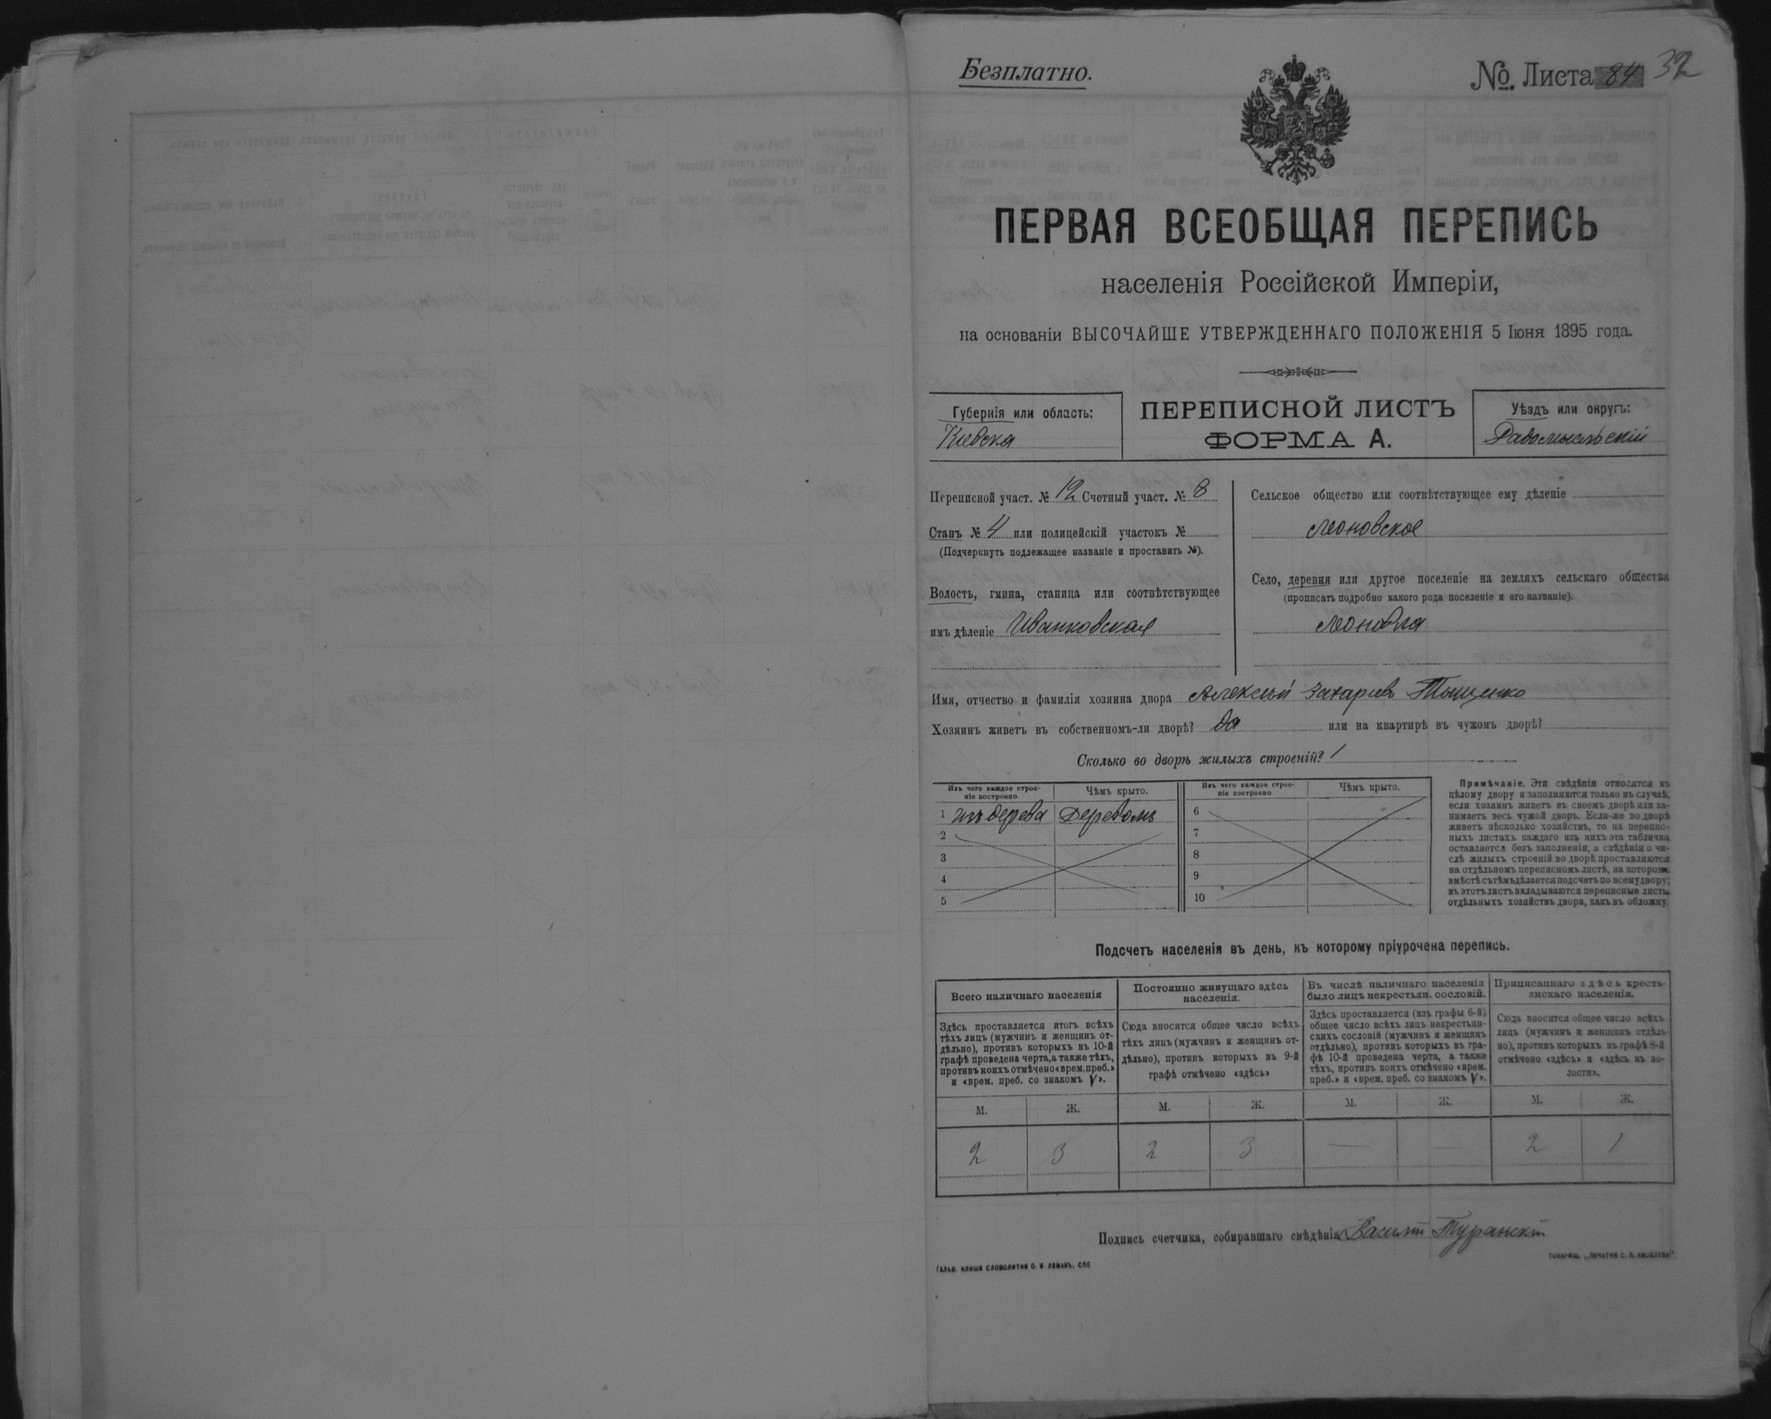 Безплатно.
№. Листа 84 32
ПЕРВАЯ ВСЕОБЩАЯ ПЕРЕПИСЬ
населенія Россійской Имперіи,
на основаніи ВЫСОЧАЙШЕ УТВЕРЖДЕННАГО ПОЛОЖЕНІЯ 5 Іюня 1895 года.
Губернія или область:
Киевска
ПЕРЕПИСНОЙ ЛИСТЪ
ФОРМА А.
Уѣздъ или округъ:
Радомысльскій
Переписной участ. № 12 Счетный участ. № 8
Станъ № 4 или полицейскій участокъ №
(Подчеркнуть подлежащее названіе и проставить №).
Волость, гмина, станица или соотвѣтствующее
имъ дѣленіе Иванковская
Сельское общество или соотвѣтствующее ему дѣленіе
Леоновское
Село, деревня или другое поселеніе на земляхъ сельскаго общества
(прописать подробно какого рода поселеніе и его названіе).
Леоновка
Имя, отчество и фамилія хозяина двора Алексѣй Захаріевъ Тыщенко
Хозяинъ живетъ въ собственномъ-ли дворѣ? да или на квартирѣ въ чужомъ дворѣ?
Сколько во дворѣ жилыхъ строеній? 1
Изъ чего каждое строе-
ніе построено
Чѣмъ крыто.
1 изъ дерева Деревомъ
2
3
4
5
Изъ чего каждое строе-
ніе построено
Чѣмъ крыто.
6
7
8
9
10
Примѣчаніе. Эти свѣдѣнія относятся къ
цѣлому двору и заполняются только въ случаѣ,
если хозяинъ живетъ въ своемъ дворѣ или за-
нимаетъ весь чужой дворъ. Если-же во дворѣ
живетъ нѣсколько хозяйствъ, то на перепис-
ныхъ листахъ каждаго изъ нихъ эта табличка
оставляется безъ заполненія, а свѣдѣнія о чи-
слѣ жилыхъ строеній во дворѣ проставляются
на отдѣльномъ переписномъ листѣ, на которомъ
вмѣстѣ съ тѣмъ дѣлается подсчетъ по всему двору;
въ этотъ листъ вкладываются переписные листы
отдѣльныхъ хозяйствъ двора, какъ въ обложку.
Подсчетъ населенія въ день, къ которому пріурочена перепись.
Всего наличнаго населенія
Здѣсь проставляется итогъ всѣхъ
тѣхъ лицъ (мужчинъ и женщинъ от-
дѣльно), противъ которыхъ въ 10-й
графѣ проведена черта, а также тѣхъ,
противъ коихъ отмѣчено «врем. преб.»
и «врем. преб. со знакомъ V».
Постоянно живущаго здѣсь
населенія.
Сюда вносится общее число всѣхъ
тѣхъ лицъ (мужчинъ и женщинъ от-
дѣльно), противъ которыхъ въ 9-й
графѣ отмѣчено «здѣсь»
Въ числѣ наличнаго населенія
было лицъ некрестьян. сословій.
Здѣсь проставляется (изъ графы 6-й)
общее число всѣхъ лицъ некрестьян-
скихъ сословій (мужчинъ и женщинъ
отдѣльно), противъ которыхъ въ гра-
фѣ 10-й проведена черта, а также
тѣхъ, противъ коихъ отмѣчено «врем.
преб.» и «врем. преб. со знакомъ V».
Приписаннаго здѣсь кресть-
янскаго населенія.
Сюда вносится общее число всѣхъ
лицъ (мужчинъ и женщинъ отдѣль-
но), противъ которыхъ въ графѣ 8-й
отмѣчено «здѣсь» и «здѣсь въ во-
лости».
М. Ж. М. Ж. М. Ж. М. Ж.
2 3 2 3 — — 2 1
Подпись счетчика, собиравшаго свѣдѣнія Василій Туранскій
ГАЛЬВ. КЛИШЕ СЛОВОЛИТНИ О. И. ЛЕМАНЪ, СПБ
ТОВАРИЩ. „ПЕЧАТНЯ С. П. ЯКОВЛЕВА"